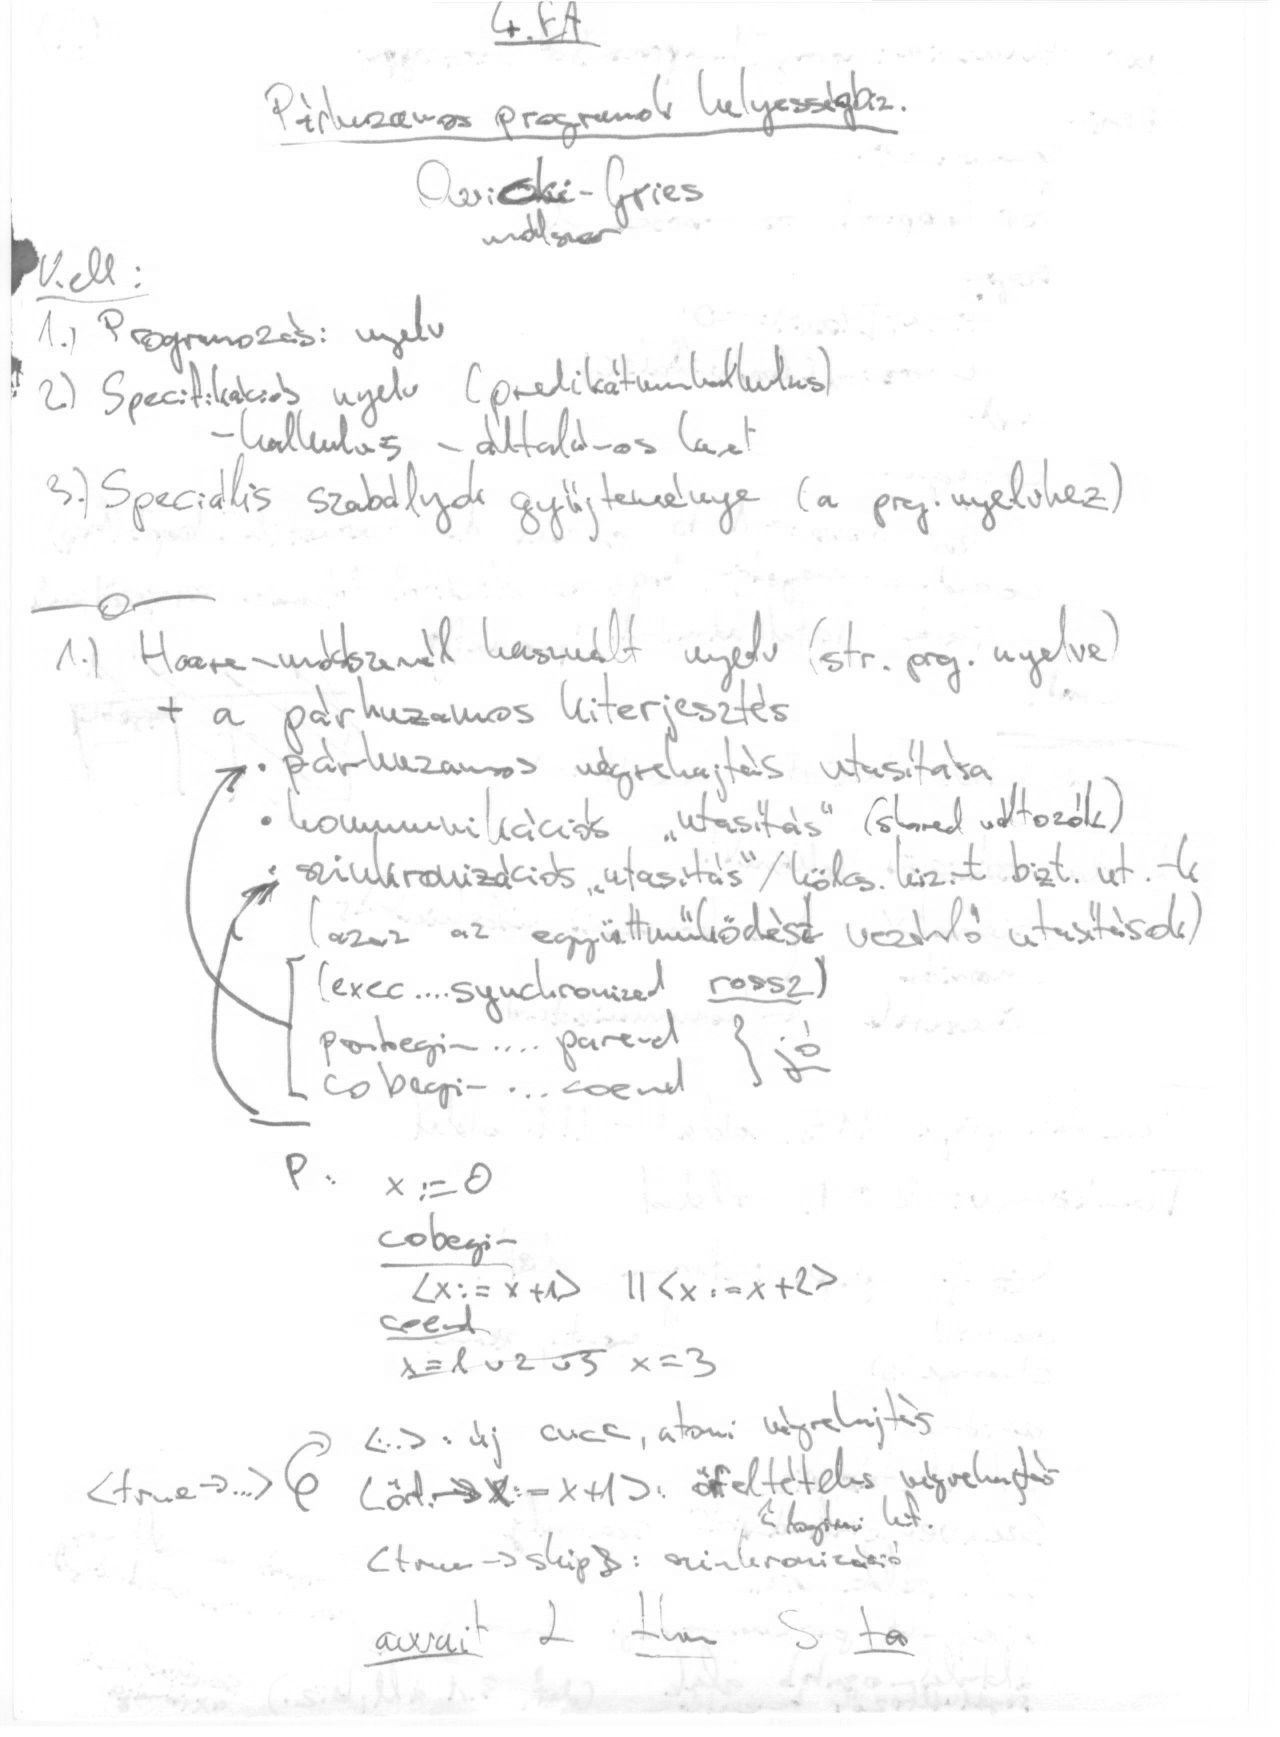 4. EA
Párhuzamos programok helyességbiz.
Owicki-Gries
módszer
Kell:
1.) Programozás: nyelv
2.) Specifikációs nyelv (predikátumkalkulus)
-kalkulus - általános keret
3.) Speciális szabályok gyűjteménye (a prog. nyelvhez)
1.) Hoare-módszernél használt nyelv (str. prog. nyelve)
+ a párhuzamos kiterjesztés
• párhuzamos végrehajtás utasítása
• kommunikációs „utasítás" (shared változók)
• szinkronizációs „utasítás"/kölcs. kiz.-t bizt. ut.-k
(azaz az együttműködést vezérlő utasítások)
(exec....synchronized rossz)
parbegin .... parend } jó
cobegin ... coend
P: x := 0
cobegin
<x:=x+1> || <x:=x+2>
coend
x=1 v 2 v 3 x=3
<...> : új cucc, atomi végrehajtás
<true→...> <őrf.→x:=x+1>: őrfeltételes végrehajtás
kif.
<true→skip>: szinkronizáció
await L then S ta